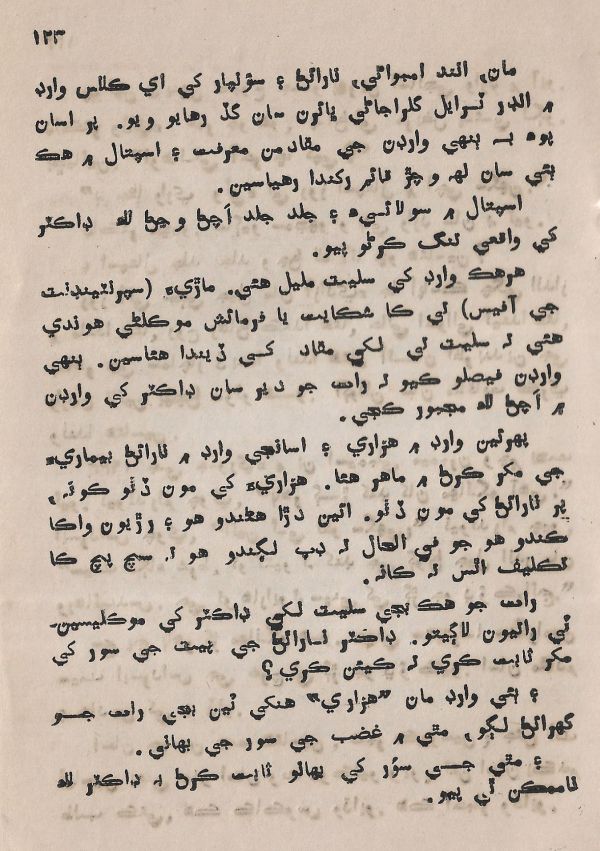 ۱۲۳
مان، انند امبواڻي، نارائڻ ۽ سؤنهار کي اي ڪلاس وارڊ
۾ اندر ٽرايل گلراجاڻي ڀائرن سان گڏ رهايو ويو. پر اسان
پوءِ بہ ٻنهي وارڊن جي مقادمن معرفت ۽ اسپتال ۾ هڪ
ٻئي سان لهہ وچڙ قائم رکندا رهياسين.
اسپتال ۾ سولائيءَ ۽ جلد جلد اَچڻ وڃڻ لاءِ ڊاڪٽر
کي واقعي تنگ ڪرڻو پيو.
هرهڪ وارڊ کي سليٽ مليل هئي. ماڙيءَ (سپرنٽينڊنٽ
جي آفيس) تي ڪا شڪايت يا فرمائش موڪلڻي هوندي
هئي تہ سليٽ تي لکي مقادم کي ڏيندا هئاسين. ٻنهي
وارڊن فيصلو ڪيو تہ رات جو دير سان ڊاڪٽر کي وارڊن
۾ اَچڻ لاءِ مجبور ڪجي.
پهرئين وارڊ ۾ هزاري ۽ اسانجي وارڊ ۾ نارائڻ بيماريءَ
جي مڪر ڪرڻ ۾ ماهر هئا. هزاريءَ کي مون ڏٺو ڪونہ،
پر نارائڻ کي مون ڏٺو. ائين دڙا هڻندو هو ۽ رڙيون واڪا
ڪندو هو جو في الحال تہ ڊپ لڳندو هو تہ سچ پچ ڪا
تڪليف اٿس تہ ڪانہ.
رات جو هڪ بجي سليٽ لکي ڊاڪٽر کي موڪليسين-
ٽي رائيون لاڳيتو. ڊاڪٽر نارائڻ جي پيٽ جي سور کي
مڪر ثابت ڪري تہ ڪيئن ڪري؟
۽ ٻئي وارڊ مان ”هزاري“ هنکي ٽين بجي رات جو
گهرائڻ لڳو، مٿي ۾ غضب جي سور جي بهاني.
۽ مٿي جي سوُر کي بهانو ثابت ڪرڻ بہ ڊاڪٽر لاءِ
ناممڪن ٿي پيو.